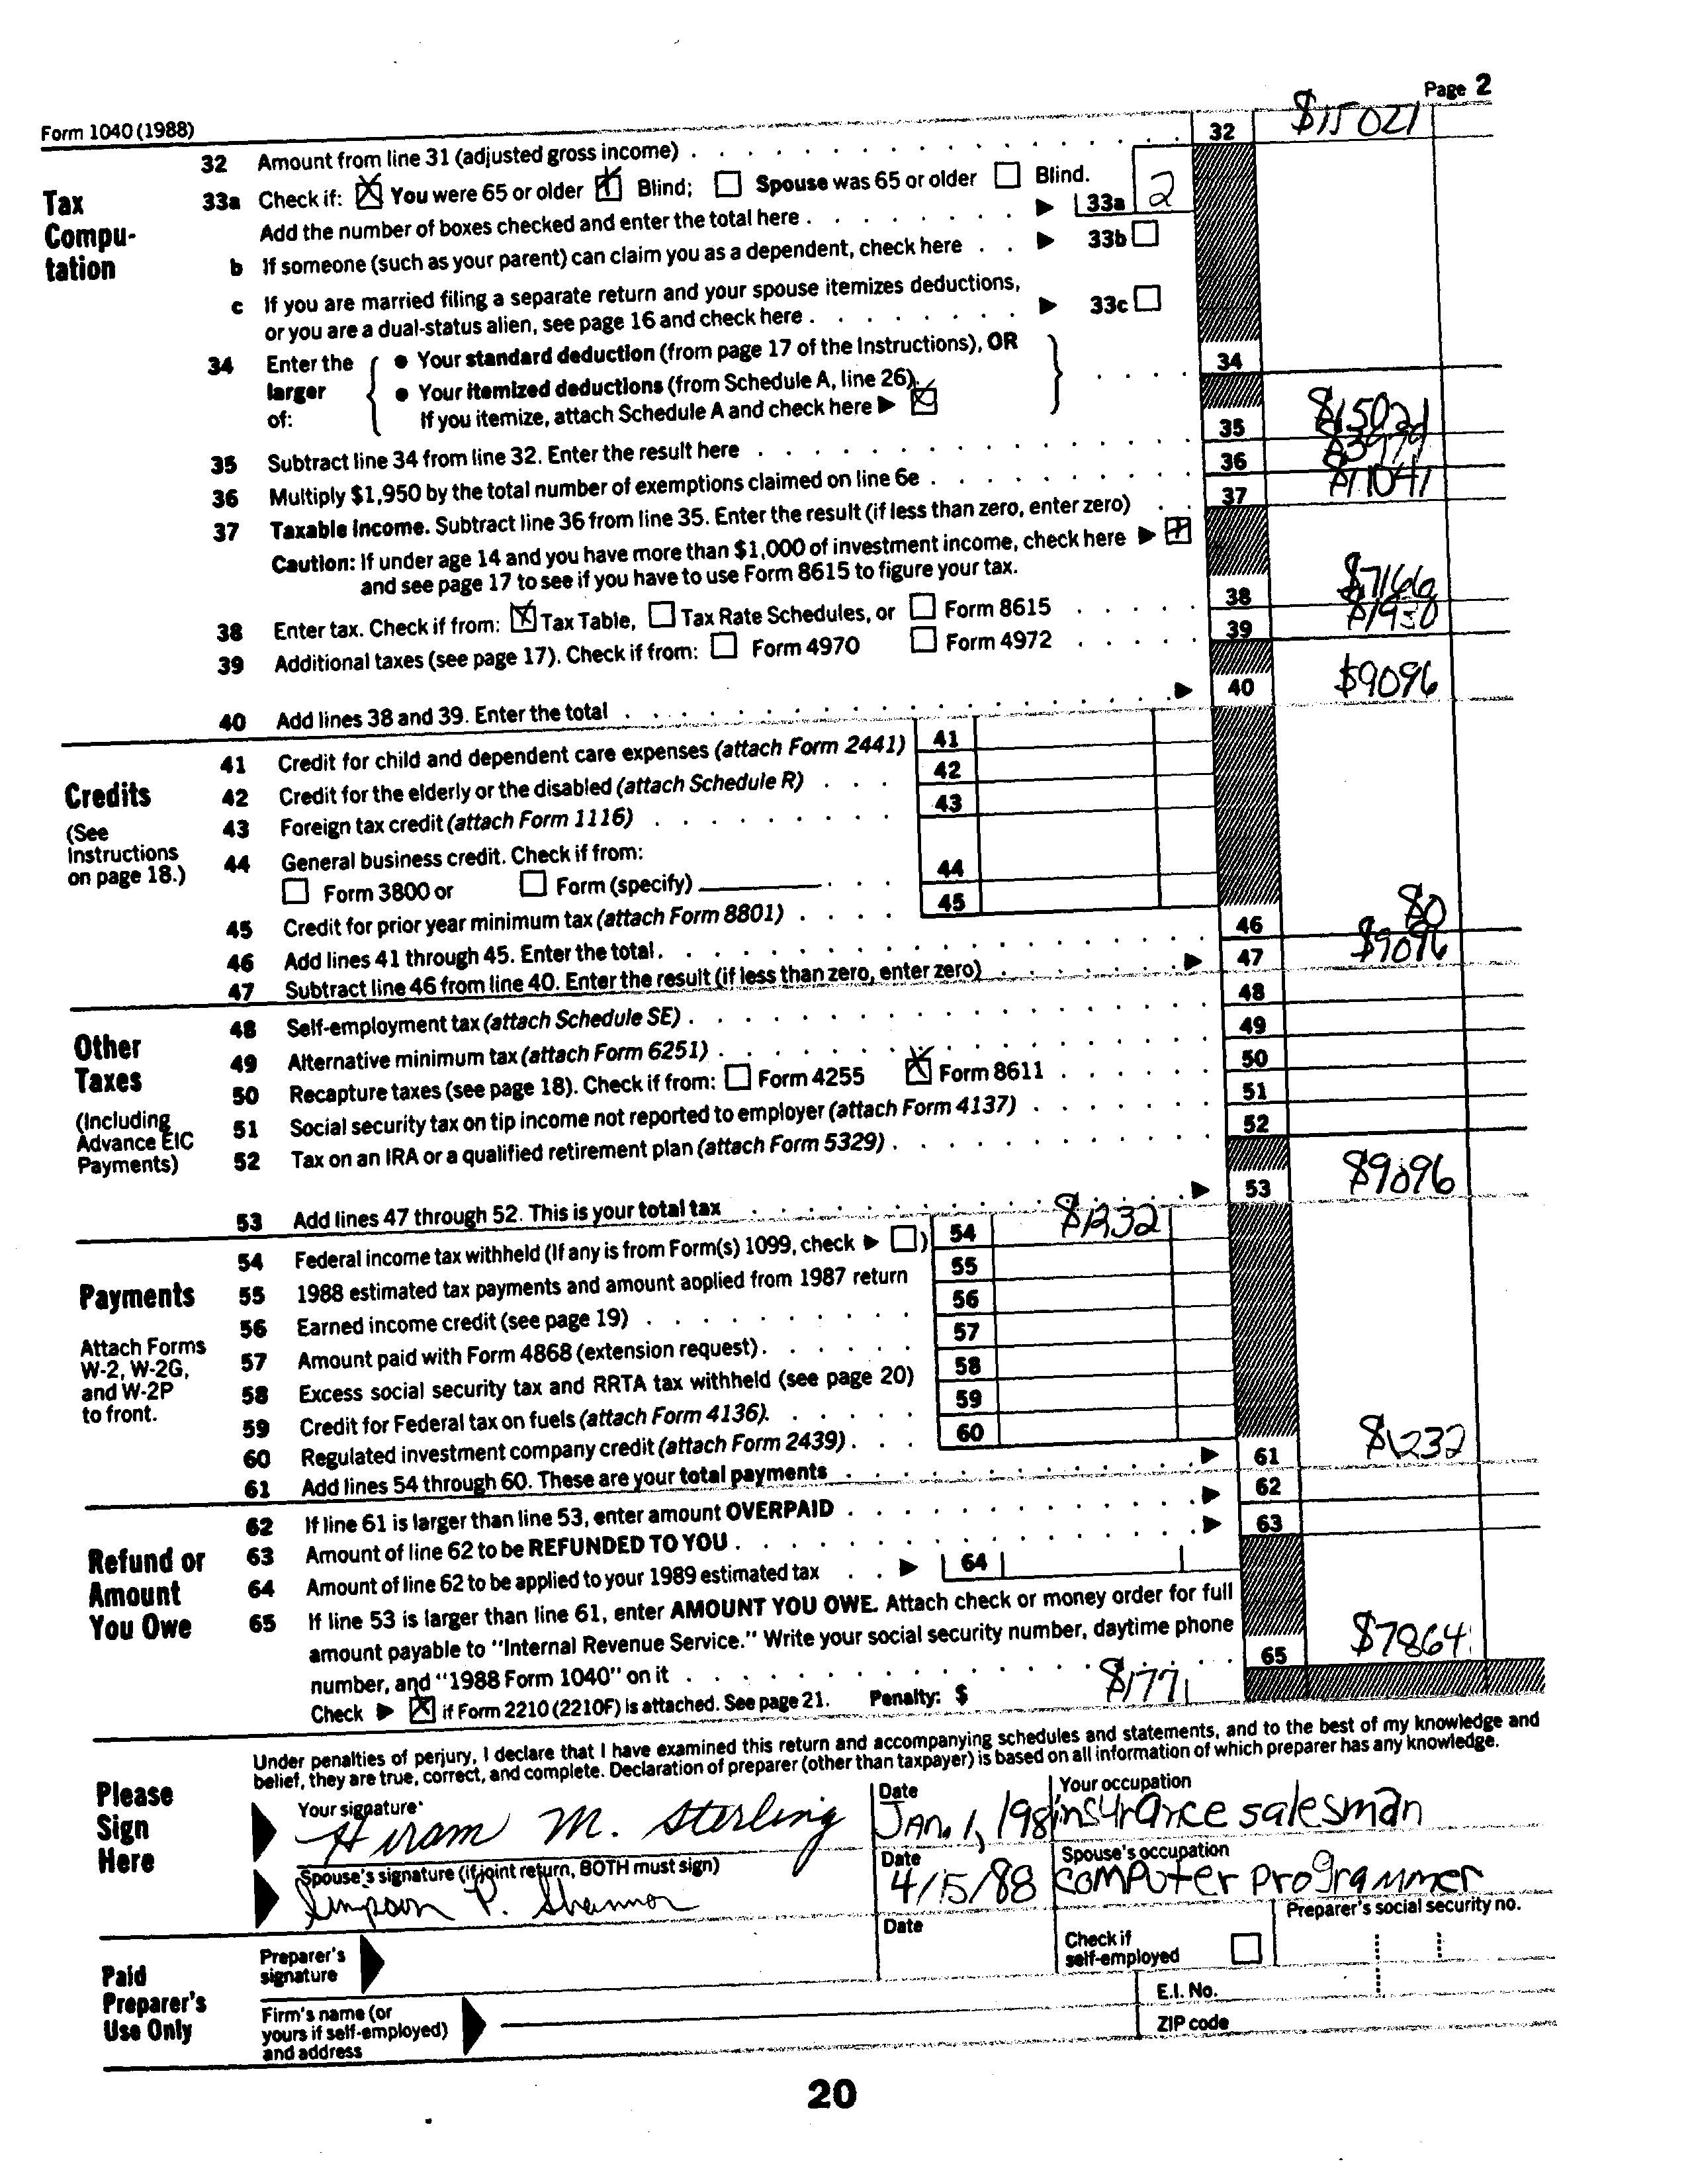 Form 1040 (1988) Page 2
Tax Computation
32 Amount from line 31 (adjusted gross income) 32 $15021
33a Check if: ☒ You were 65 or older ☒ Blind; ☐ Spouse was 65 or older ☐ Blind.
Add the number of boxes checked and enter the total here ▶ 33a 2
b If someone (such as your parent) can claim you as a dependent, check here ▶ 33b ☐
c If you are married filing a separate return and your spouse itemizes deductions,
or you are a dual-status alien, see page 16 and check here ▶ 33c ☐
34 Enter the larger of: { ● Your standard deduction (from page 17 of the Instructions), OR
● Your itemized deductions (from Schedule A, line 26).
If you itemize, attach Schedule A and check here ▶ ☒ } 34
35 Subtract line 34 from line 32. Enter the result here 35 $15021
36 Multiply $1,950 by the total number of exemptions claimed on line 6e 36
37 Taxable Income. Subtract line 36 from line 35. Enter the result (if less than zero, enter zero) 37 $11041
Caution: If under age 14 and you have more than $1,000 of investment income, check here ▶ ☒
and see page 17 to see if you have to use Form 8615 to figure your tax.
38 Enter tax. Check if from: ☒ Tax Table, ☐ Tax Rate Schedules, or ☐ Form 8615 38 $7166
39 Additional taxes (see page 17). Check if from: ☐ Form 4970 ☐ Form 4972 39 $1930
40 Add lines 38 and 39. Enter the total ▶ 40 $9096
Credits
(See Instructions on page 18.)
41 Credit for child and dependent care expenses (attach Form 2441) 41
42 Credit for the elderly or the disabled (attach Schedule R) 42
43 Foreign tax credit (attach Form 1116) 43
44 General business credit. Check if from:
☐ Form 3800 or ☐ Form (specify) 44
45 Credit for prior year minimum tax (attach Form 8801) 45
46 Add lines 41 through 45. Enter the total 46 $0
47 Subtract line 46 from line 40. Enter the result (if less than zero, enter zero) ▶ 47 $9096
Other Taxes
(Including Advance EIC Payments)
48 Self-employment tax (attach Schedule SE) 48
49 Alternative minimum tax (attach Form 6251) 49
50 Recapture taxes (see page 18). Check if from: ☐ Form 4255 ☒ Form 8611 50
51 Social security tax on tip income not reported to employer (attach Form 4137) 51
52 Tax on an IRA or a qualified retirement plan (attach Form 5329) 52
53 Add lines 47 through 52. This is your total tax ▶ 53 $9096
Payments
Attach Forms W-2, W-2G, and W-2P to front.
54 Federal income tax withheld (If any is from Form(s) 1099, check ▶ ☐) 54 $1232
55 1988 estimated tax payments and amount applied from 1987 return 55
56 Earned income credit (see page 19) 56
57 Amount paid with Form 4868 (extension request) 57
58 Excess social security tax and RRTA tax withheld (see page 20) 58
59 Credit for Federal tax on fuels (attach Form 4136). 59
60 Regulated investment company credit (attach Form 2439) 60
61 Add lines 54 through 60. These are your total payments ▶ 61 $1232
Refund or Amount You Owe
62 If line 61 is larger than line 53, enter amount OVERPAID ▶ 62
63 Amount of line 62 to be REFUNDED TO YOU ▶ 63
64 Amount of line 62 to be applied to your 1989 estimated tax ▶ 64
65 If line 53 is larger than line 61, enter AMOUNT YOU OWE. Attach check or money order for full
amount payable to "Internal Revenue Service." Write your social security number, daytime phone
number, and "1988 Form 1040" on it 65 $7864
Check ▶ ☒ if Form 2210 (2210F) is attached. See page 21. Penalty: $ $177
Please Sign Here
Under penalties of perjury, I declare that I have examined this return and accompanying schedules and statements, and to the best of my knowledge and
belief, they are true, correct, and complete. Declaration of preparer (other than taxpayer) is based on all information of which preparer has any knowledge.
Your signature Date Your occupation
Hiram M. Sterling JAN. 1, 198 insurance salesman
Spouse's signature (if joint return, BOTH must sign) Date Spouse's occupation
Simpson P. Shannon 4/15/88 computer programmer
Paid Preparer's Use Only
Preparer's signature Date Check if self-employed ☐ Preparer's social security no.
Firm's name (or yours if self-employed) and address E.I. No.
ZIP code
20